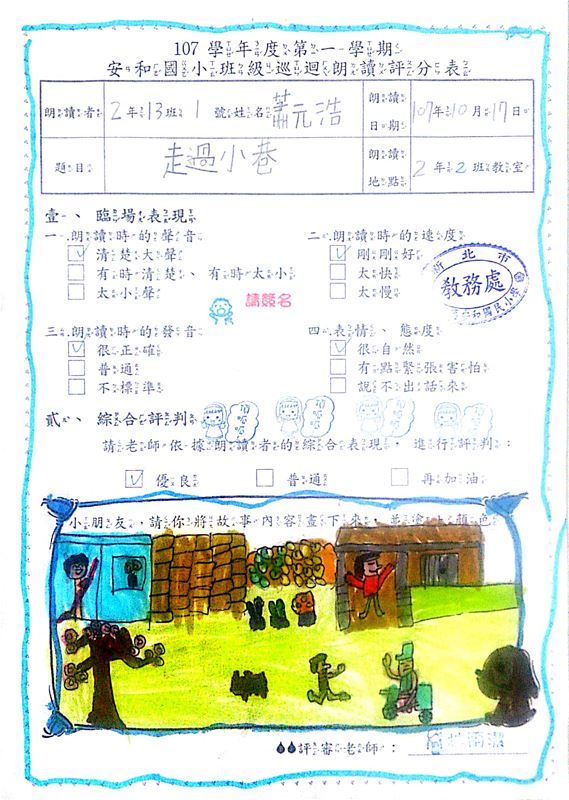 107 學年度第一學期
安和國小班級巡迴朗讀評分表
朗讀者 2年13班 1 號姓名 蕭元浩 朗讀日期 107年10月17日
題目 走過小巷 朗讀地點 2年2班教室
壹、臨場表現
一、朗讀時的聲音 二、朗讀時的速度
清楚大聲 剛剛好
有時清楚、有時太小 太快
太小聲 太慢
新北市
教務處
請簽名
三、朗讀時的發音 四、表情、態度
很正確 很自然
普通 有點緊張害怕
不標準 說不出話來
貳、綜合評判
請老師依據朗讀者的綜合表現,進行評判:
優良 普通 再加油
小朋友,請你將故事內容畫下來,並塗上顏色
評審老師: